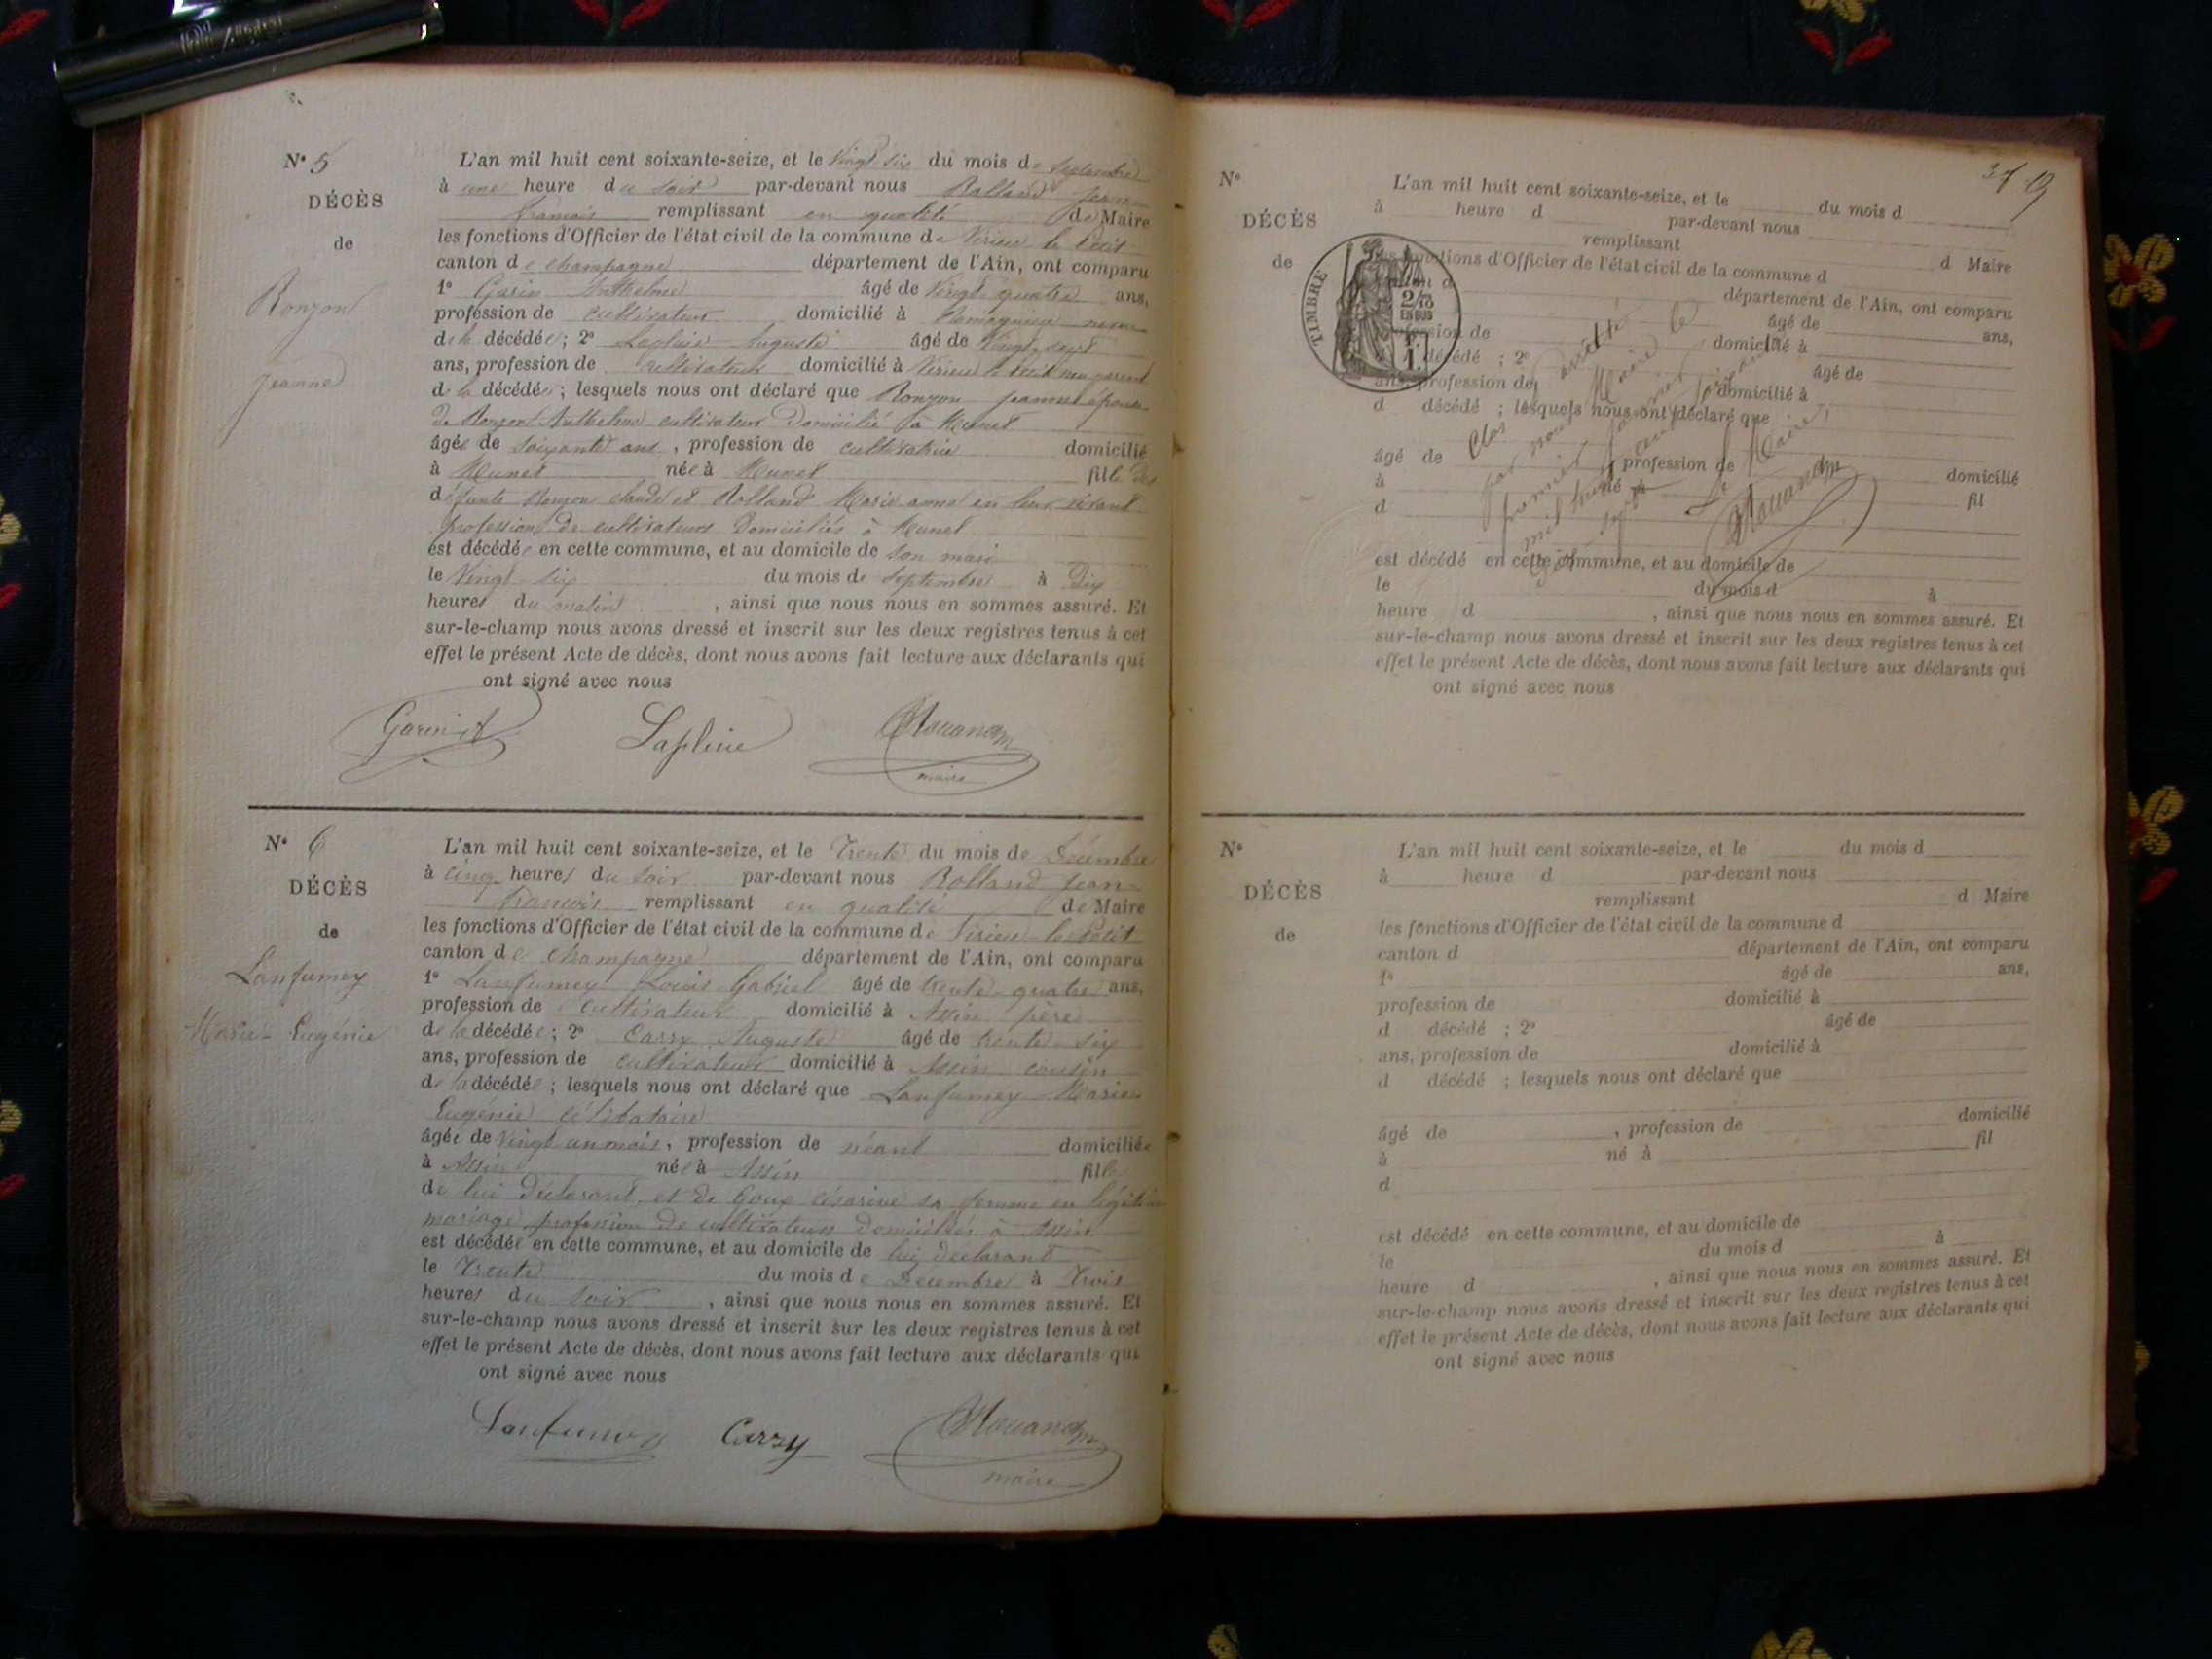 N° 5
DÉCÈS
de
Ronzon
Jeanne
L'an mil huit cent soixante-seize, et le vingt six du mois de septembre
à une heure du soir par-devant nous Rolland Jean
François remplissant en qualité de Maire
les fonctions d'Officier de l'état civil de la commune de Virieu le Petit
canton de Champagne département de l'Ain, ont comparu
1° Garin Anthelme âgé de vingt quatre ans,
profession de cultivateur domicilié à neveu
de la décédée ; 2° Auguste âgé de vingt sept
ans, profession de cultivateur domicilié à Virieu le Petit non parent
de la décédée ; lesquels nous ont déclaré que Ronzon Jeanne épouse
de Ronzon Anthelme cultivateur domicilié à Munet
âgée de soixante ans , profession de cultivatrice domicilié
à Munet née à Munet fille des
défunts Ronzon Claude et Rolland Marie anne en leur vivant
profession de cultivateurs domiciliés à Munet
est décédée en cette commune, et au domicile de son mari
le vingt six du mois de septembre à Dix
heures du matin , ainsi que nous nous en sommes assuré. Et
sur-le-champ nous avons dressé et inscrit sur les deux registres tenus à cet
effet le présent Acte de décès, dont nous avons fait lecture aux déclarants qui
ont signé avec nous
maire
N° 6
DÉCÈS
de
Lanfumey
Marie Eugénie
L'an mil huit cent soixante-seize, et le trente du mois de Décembre
à cinq heures du soir par-devant nous Rolland Jean
François remplissant en qualité de Maire
les fonctions d'Officier de l'état civil de la commune de Virieu-le-Petit
canton de Champagne département de l'Ain, ont comparu
1° Lanfumey Louis Gabriel âgé de trente quatre ans,
profession de cultivateur domicilié à Assin père
de la décédée ; 2° Carry Auguste âgé de trente six
ans, profession de cultivateur domicilié à Assin cousin
de la décédée ; lesquels nous ont déclaré que Lanfumey Marie
Eugénie célibataire
âgée de vingt un mois, profession de néant domiciliée
à Assin née à Assin fille
de lui déclarant et de Goux césarine sa femme en légitime
mariage profession de cultivateurs domiciliés à Assin
est décédée en cette commune, et au domicile de lui déclarant
le Trente du mois de Décembre à Trois
heures du soir , ainsi que nous nous en sommes assuré. Et
sur-le-champ nous avons dressé et inscrit sur les deux registres tenus à cet
effet le présent Acte de décès, dont nous avons fait lecture aux déclarants qui
ont signé avec nous
Lanfumey Carry
maire
N°
DÉCÈS
de
L'an mil huit cent soixante-seize, et le du mois d
à heure d par-devant nous
remplissant d Maire
les fonctions d'Officier de l'état civil de la commune d
département de l'Ain, ont comparu
âgé de ans,
profession de domicilié à
d décédé ; 2° âgé de
ans, profession de domicilié à
d décédé ; lesquels nous ont déclaré que
âgé de profession de domicilié
à né à fil
d
est décédé en cette commune, et au domicile de
le du mois d à
heure d , ainsi que nous nous en sommes assuré. Et
sur-le-champ nous avons dressé et inscrit sur les deux registres tenus à cet
effet le présent Acte de décès, dont nous avons fait lecture aux déclarants qui
ont signé avec nous
TIMBRE
2/10
EN SUS
Clos arrêté
par nous Maire le
premier janvier
mil huit cent soixante
dix sept
Le Maire,
N°
DÉCÈS
de
L'an mil huit cent soixante-seize, et le du mois d
à heure d par-devant nous
remplissant d Maire
les fonctions d'Officier de l'état civil de la commune d
canton d département de l'Ain, ont comparu
1° âgé de ans,
profession de domicilié à
d décédé ; 2° âgé de
ans, profession de domicilié à
d décédé ; lesquels nous ont déclaré que
âgé de , profession de domicilié
à né à fil
d
est décédé en cette commune, et au domicile de
le du mois d à
heure d , ainsi que nous nous en sommes assuré. Et
sur-le-champ nous avons dressé et inscrit sur les deux registres tenus à cet
effet le présent Acte de décès, dont nous avons fait lecture aux déclarants qui
ont signé avec nous